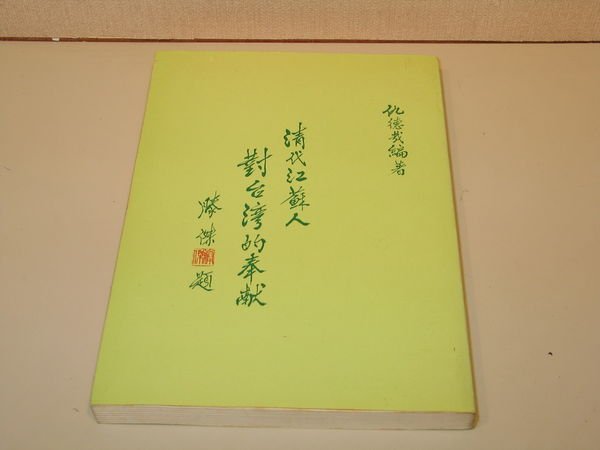 仇德哉編著
清代江蘇人
對台湾的奉献
滕傑題